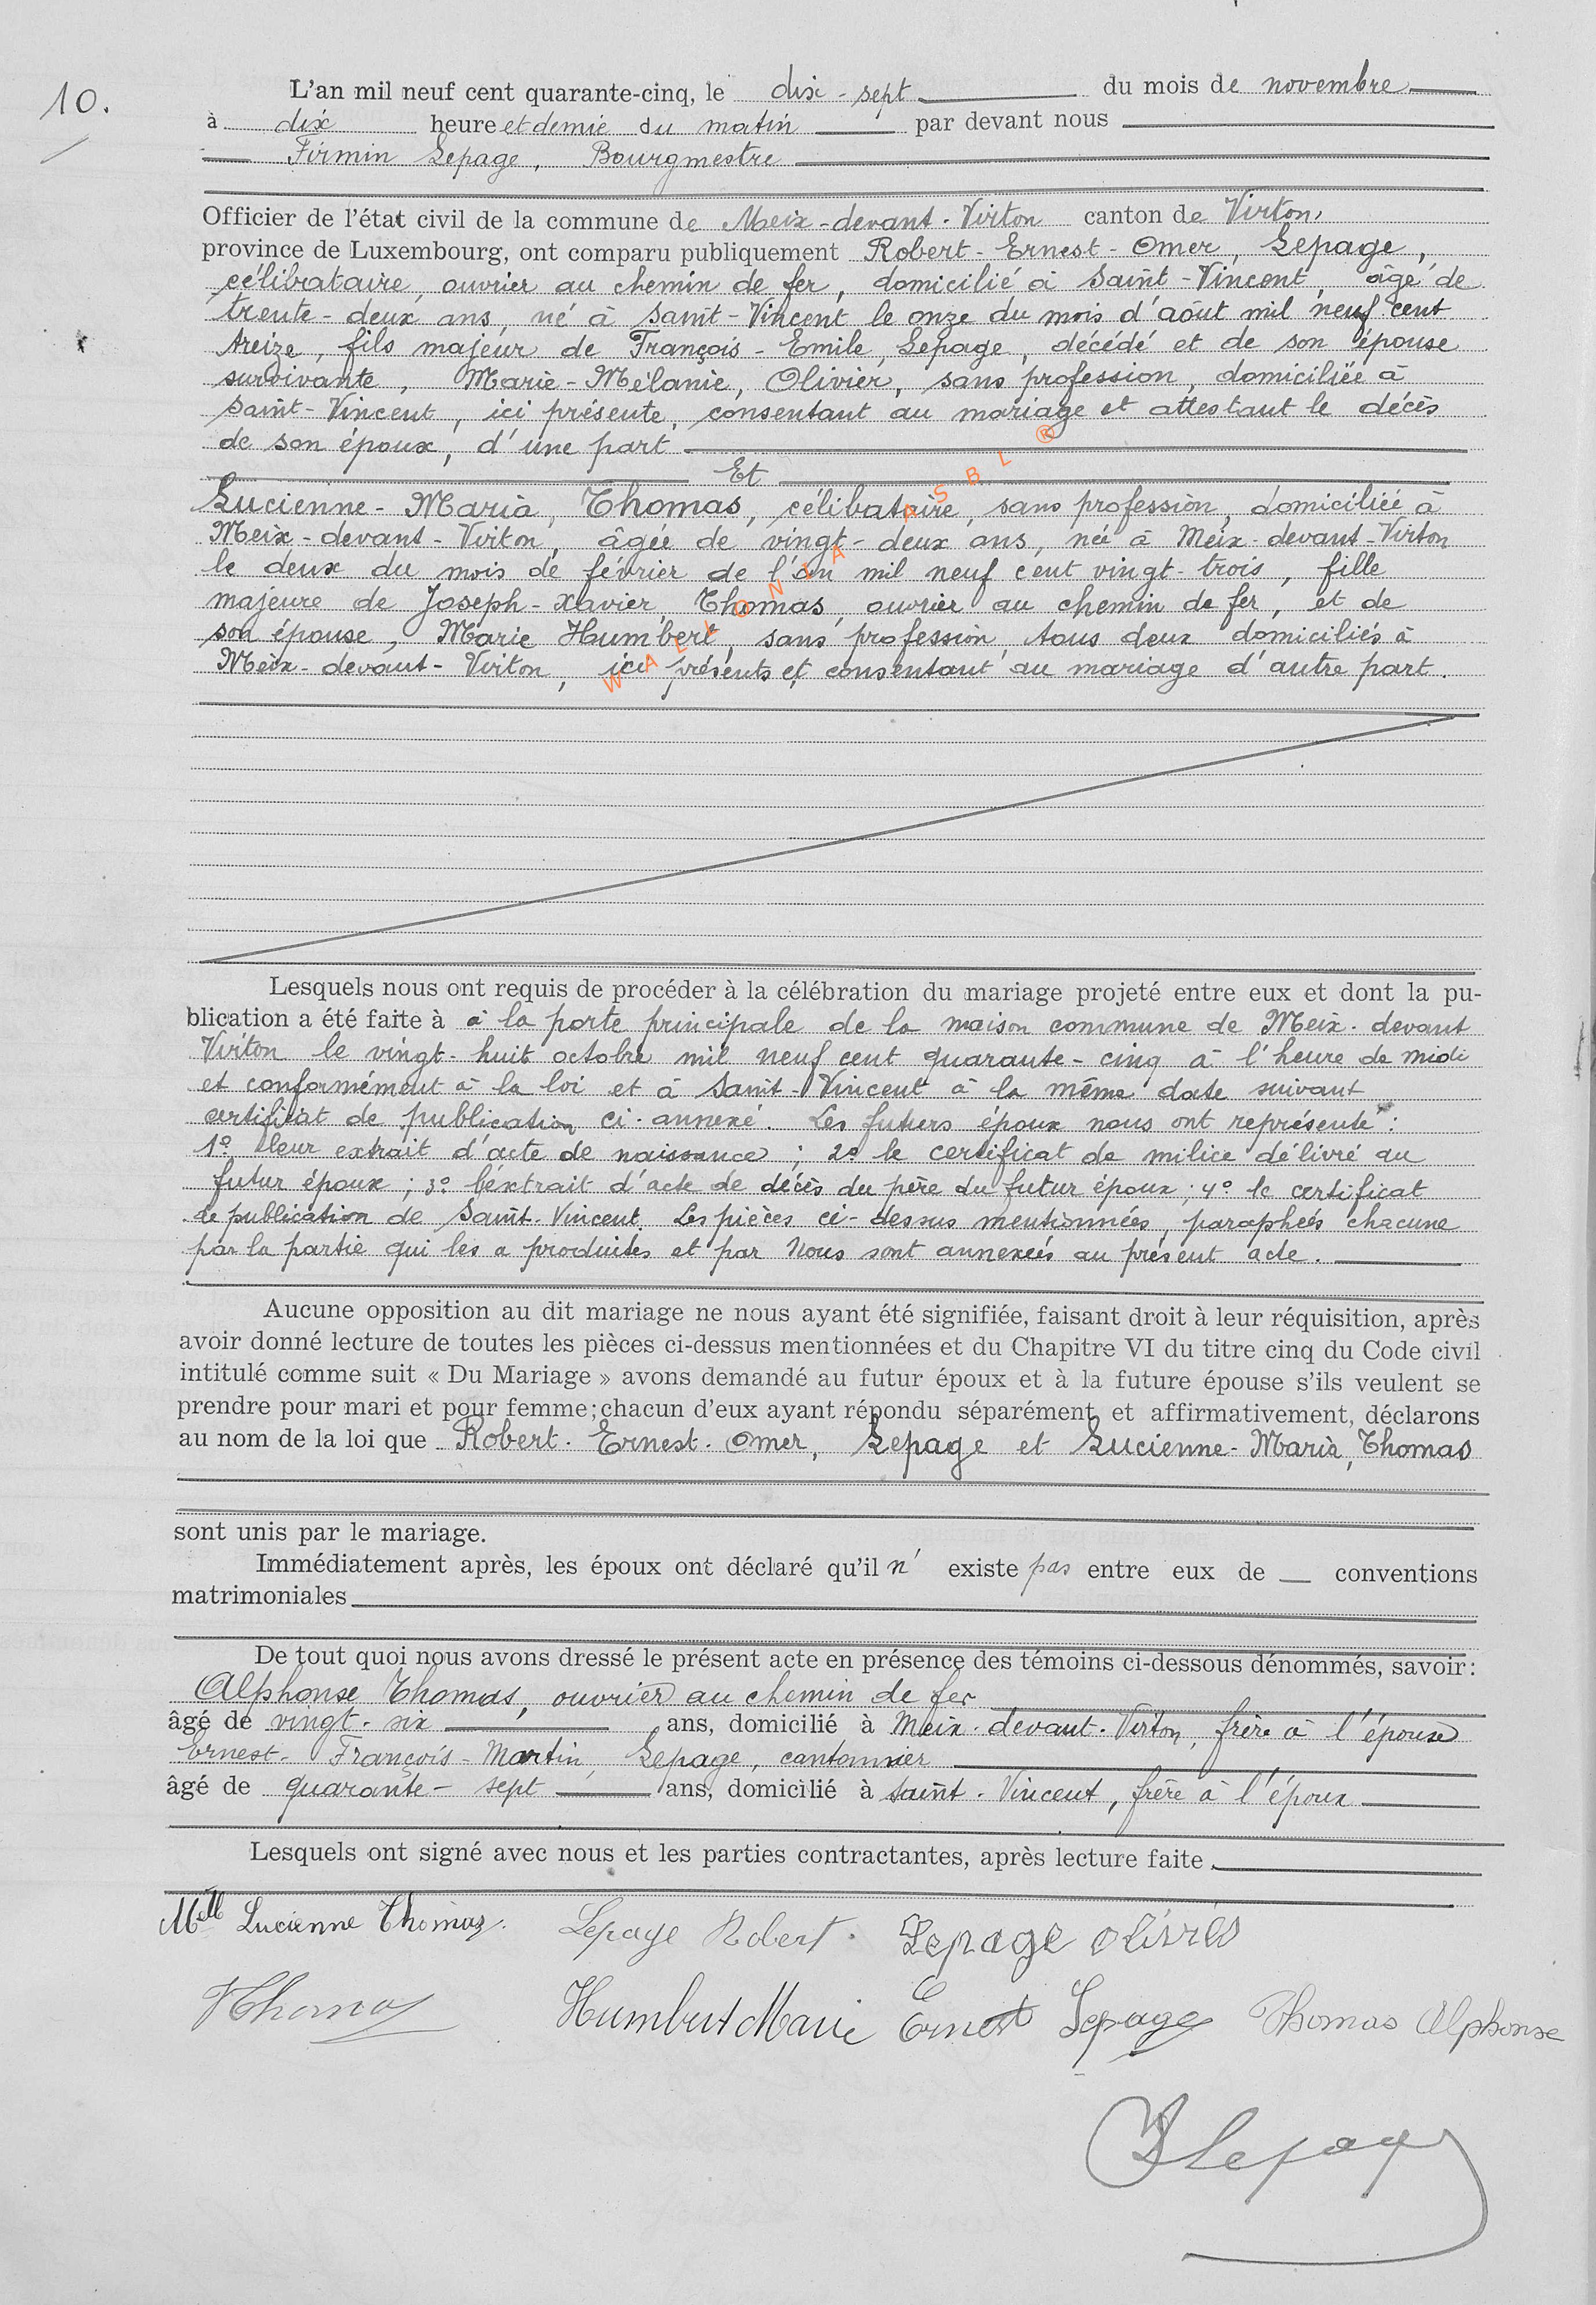 10.
L'an mil neuf cent quarante-cinq, le dix-sept du mois de novembre
à dix heure et demie du matin par devant nous
Firmin Lepage, Bourgmestre
Officier de l'état civil de la commune de Meix-devant-Virton canton de Virton,
province de Luxembourg, ont comparu publiquement Robert-Ernest-Omer, Lepage,
célibataire, ouvrier au chemin de fer, domicilié à Saint-Vincent, âgé de
trente-deux ans, né à Saint-Vincent le onze du mois d'août mil neuf cent
treize, fils majeur de François-Emile, Lepage, décédé et de son épouse
survivante, Marie-Mélanie, Olivier, sans profession, domiciliée à
Saint-Vincent, ici présente, consentant au mariage et attestant le décès
de son époux, d'une part
Et
Lucienne-Maria, Thomas, célibataire, sans profession, domiciliée à
Meix-devant-Virton, âgée de vingt-deux ans, née à Meix-devant-Virton
le deux du mois de février de l'an mil neuf cent vingt-trois, fille
majeure de Joseph-Xavier, Thomas, ouvrier au chemin de fer, et de
son épouse, Marie Humbert, sans profession, tous deux domiciliés à
Meix-devant-Virton, ici présents et consentant au mariage d'autre part.
WALLONIA ASBL ®
Lesquels nous ont requis de procéder à la célébration du mariage projeté entre eux et dont la pu-
blication a été faite à à la porte principale de la maison commune de Meix-devant
Virton le vingt-huit octobre mil neuf cent quarante-cinq à l'heure de midi
et conformément à la loi et à Saint-Vincent à la même date suivant
certificat de publication ci-annexé. Les futurs époux nous ont représenté :
1° leur extrait d'acte de naissance ; 2° le certificat de milice délivré au
futur époux ; 3° l'extrait d'acte de décès du père du futur époux ; 4° le certificat
de publication de Saint-Vincent. Les pièces ci-dessus mentionnées, paraphées chacune
par la partie qui les a produites et par Nous sont annexées au présent acte.
Aucune opposition au dit mariage ne nous ayant été signifiée, faisant droit à leur réquisition, après
avoir donné lecture de toutes les pièces ci-dessus mentionnées et du Chapitre VI du titre cinq du Code civil
intitulé comme suit « Du Mariage » avons demandé au futur époux et à la future épouse s'ils veulent se
prendre pour mari et pour femme; chacun d'eux ayant répondu séparément et affirmativement, déclarons
au nom de la loi que Robert-Ernest-Omer, Lepage et Lucienne-Maria, Thomas
sont unis par le mariage.
Immédiatement après, les époux ont déclaré qu'il n' existe pas entre eux de conventions
matrimoniales
De tout quoi nous avons dressé le présent acte en présence des témoins ci-dessous dénommés, savoir :
Alphonse Thomas, ouvrier au chemin de fer
âgé de vingt-six ans, domicilié à Meix-devant-Virton, frère à l'épouse
Ernest-François-Martin, Lepage, cantonnier
âgé de quarante-sept ans, domicilié à Saint-Vincent, frère à l'époux
Lesquels ont signé avec nous et les parties contractantes, après lecture faite.
Mlle Lucienne Thomas. Lepage Robert. Lepage
Thomas Humbert Marie Ernest Lepage Thomas Alphonse
Lepage